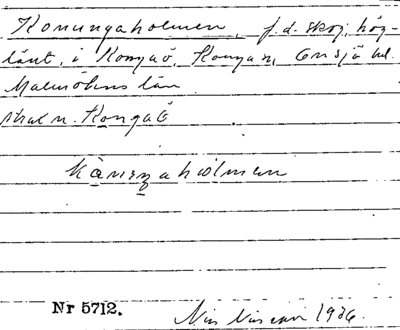 Konungaholmen, f.d. skog, hög-
länt, i Kongaö, Konga sn, Onsjö hd.
Malmöhus län
skal n. Kongaö
kånungahòlmen
Nr 5712.
1936